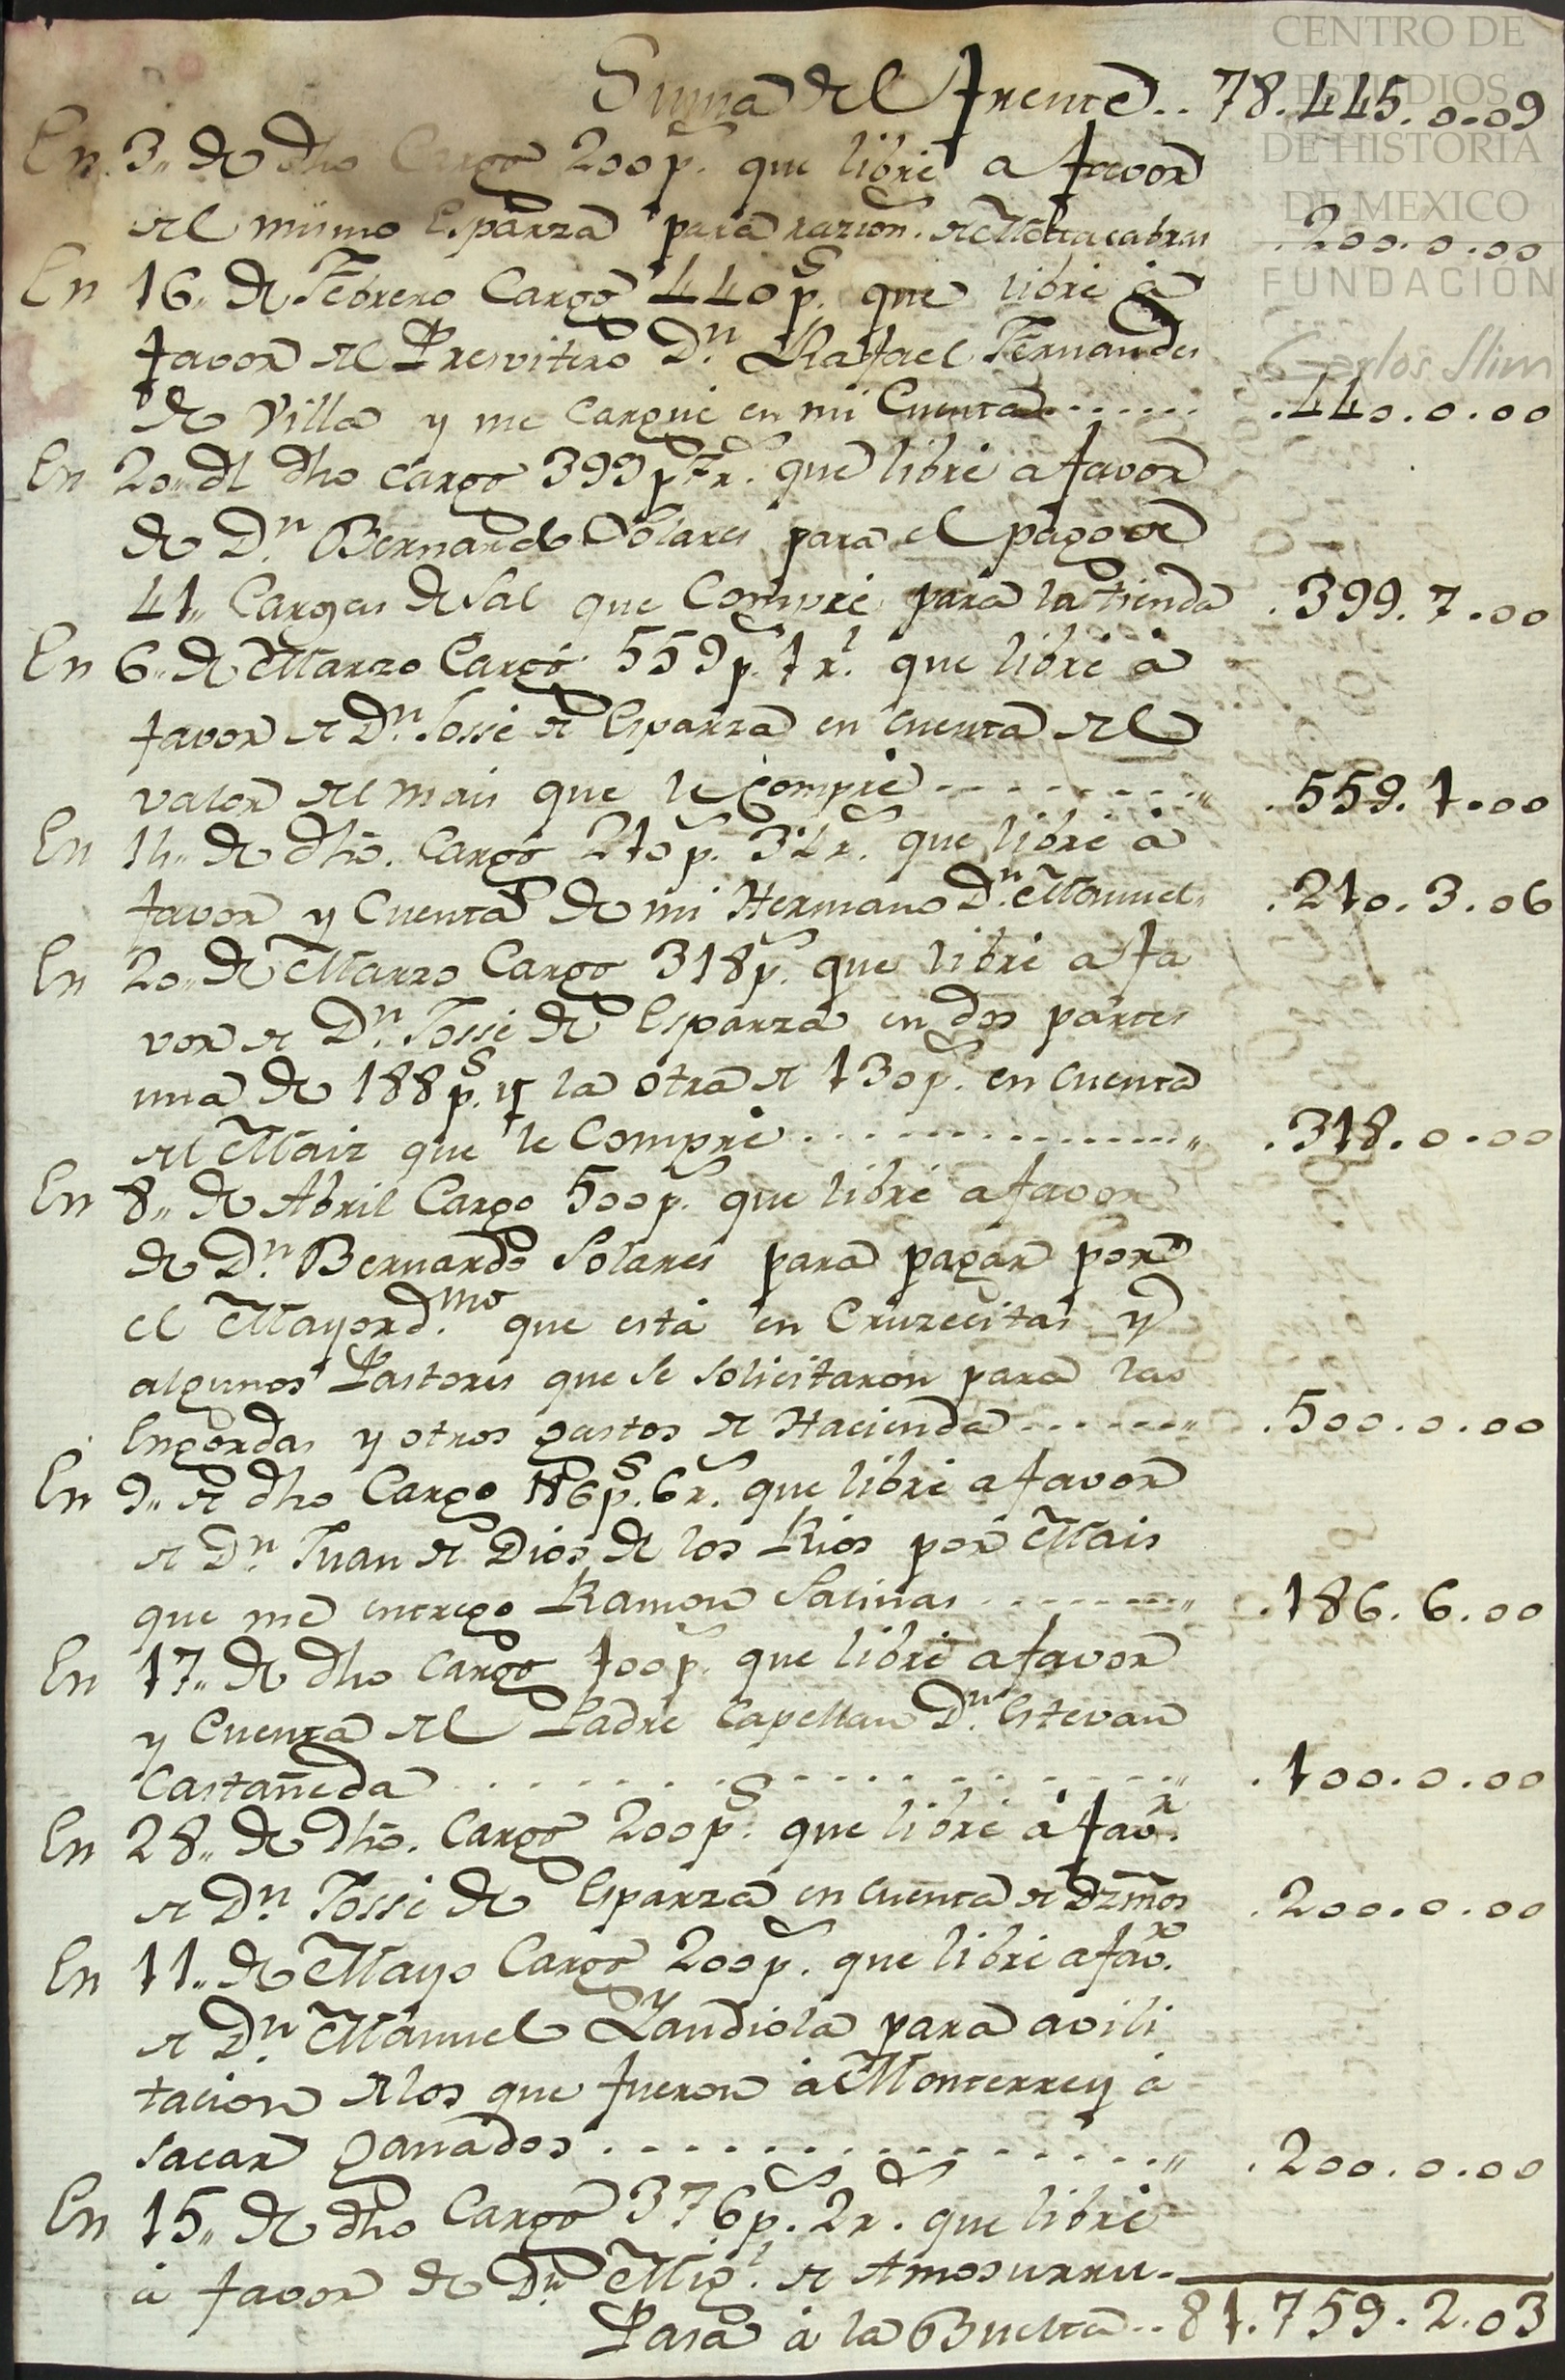 CENTRO DE
ESTUDIOS
DE HISTORIA
DE MEXICO
FUNDACIÓN
Carlos Slim
Suma del frente.. 78.445.0.09
En 3,, de dho Cargo 200 p.s que libré a favor
del mismo Esparza para razion. de Matacabras .200.0.00
En 16,, de Febrero Cargo 440 p.s que libré à
favor del Presvitero D.n Rafael Fernandes
de Villa y me Cargué en mi Cuenta...... .440.0.00
En 20,, del dho Cargo 399 p.s 7 r.s que libré a favor
de D.n Bernardo Solares para el pago de
41,, Cargas de Sal que Compré para la tienda .399.7.00
En 6,, de Marzo Cargo 559 p.s 1 r.l que libré à
favor de D.n Josse de Esparza en cuenta del
valor del mais que le Compré .........,, .559.1.00
En 14,, de dho. Cargo 210 p.s 3½ r.s que libré à
favor y Cuenta de mi Hermano D.n Manuel. .210.3.06
En 20,, de Marzo Cargo 318 p.s que libré a fa
vor de D.n Josse de Esparza en dos partes
una de 188 p.s y la otra de 130 p.s en cuenta
del Maiz que le Compré ................,, .318.0.00
En 8,, de Abril Cargo 500 p.s que libré a favor
de D.n Bernardo Solares para pagar por
el Mayord.mo que está en Cruzecitas y
algunos Pastores que se solicitaron para las
Engordas y otros gastos de Hacienda .......,, .500.0.00
En 9,, de dho Cargo 186 p.s 6 r.s que libré a favor
de D.n Juan de Dios de los Rios por Mais
que me entregó Ramon Salinas .........,, .186.6.00
En 17,, de dho Cargo 100 p.s que libré a favor
y Cuenta del Padre Capellan D.n Estevan
Castañeda ....................,, .100.0.00
En 28,, de dho. Cargo 200 p.s que libré à fav.r
de D.n Josse de Esparza en cuenta de Dzmos .200.0.00
En 11,, de Mayo Cargo 200 p.s que libré a fav.r
de D.n Manuel Yandiola para avili
tacion de los que fueron à Monterrey à
sacar ganados ..................,, .200.0.00
En 15,, de dho Cargo 376 p.s 2 r.s que libré
à favor de D.n Mig.l de Amosurru-
Pasa à la Buelta.. 81.759.2.03